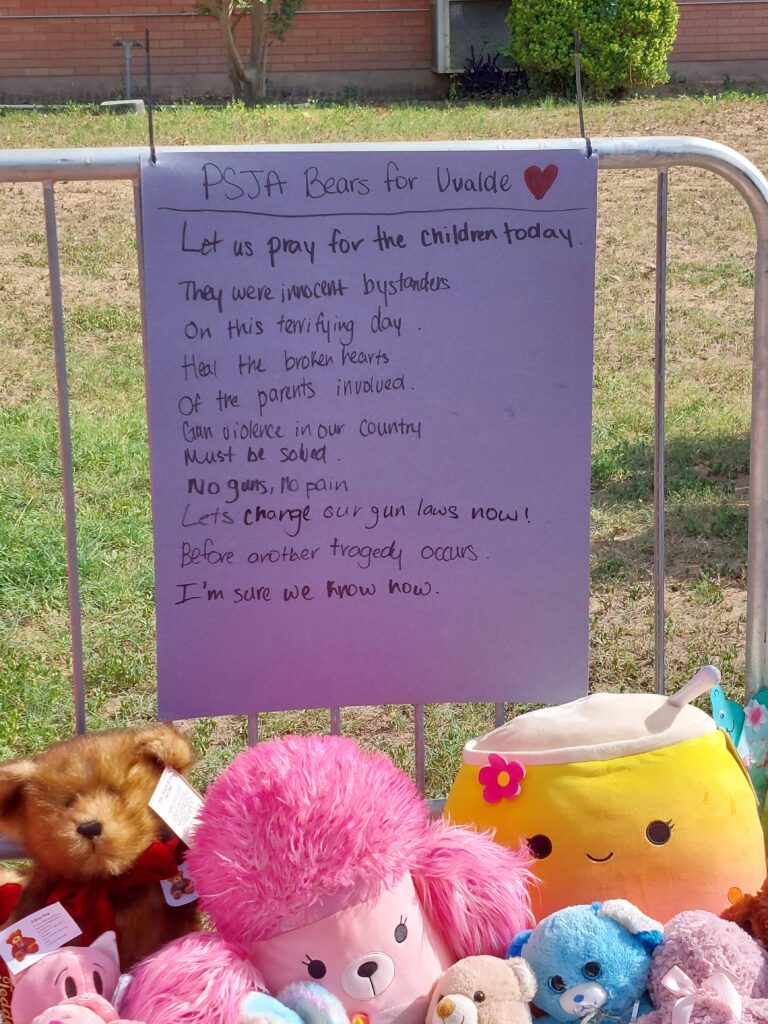 PSJA Bears for Uvalde ❤
Let us pray for the children today.
They were innocent bystanders
On this terrifying day.
Heal the broken hearts
Of the parents involved.
Gun violence in our country
Must be solved.
No guns, No pain
Lets change our gun laws now!
Before another tragedy occurs.
I'm sure we know how.